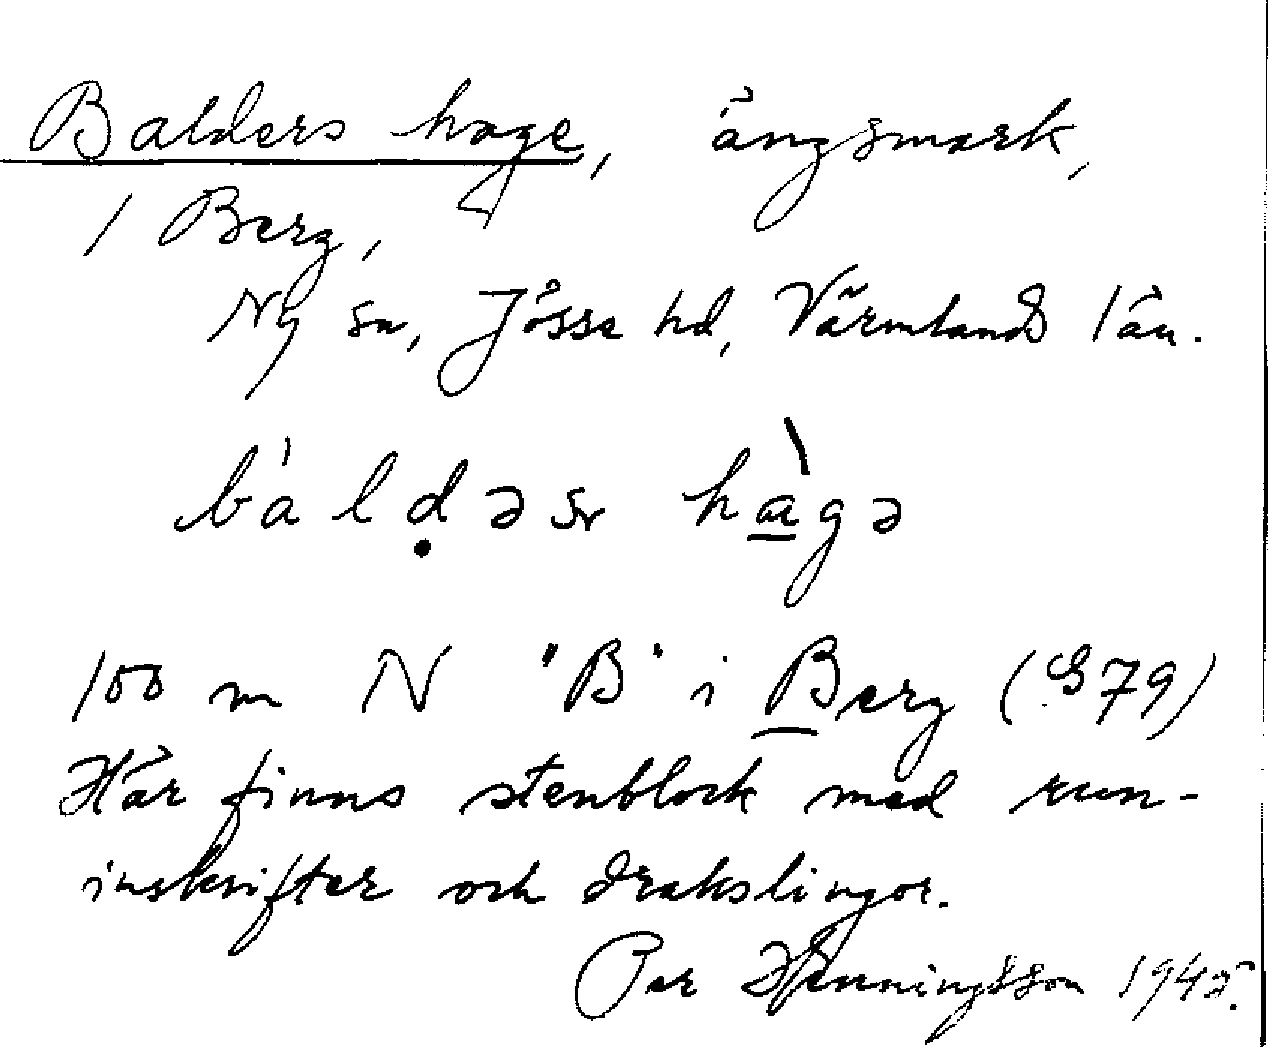 Balders hage, ängsmark,
i Berg,
Ny sn, Jösse hd, Värmlands län.
bàlḍəsr hàgə
100 m N "B" i Berg (G79)
Här finns stenblock med run-
inskrifter och drakslingor.
Per Henningsson 1945.